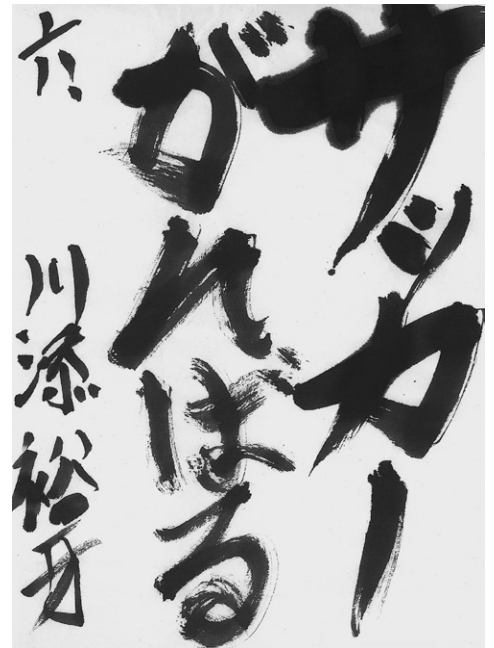 サッカー
がんばる
六 川添裕才